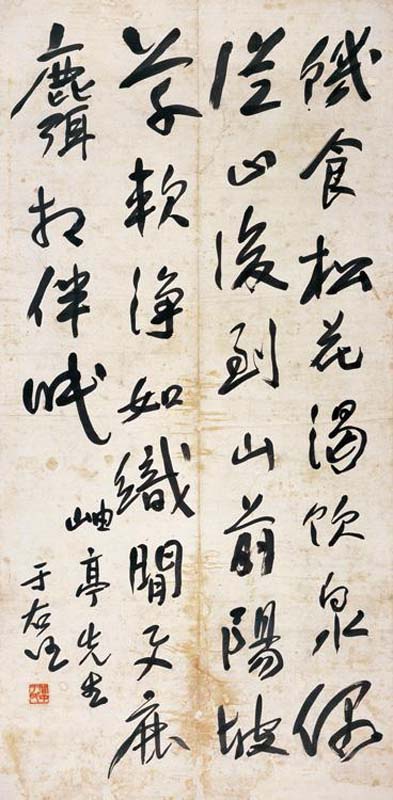 饑食松花渴飲泉偶
從山後到山前陽坡
草軟淨如織閒与鹿
麛相伴眠
岫亭先生
于右任